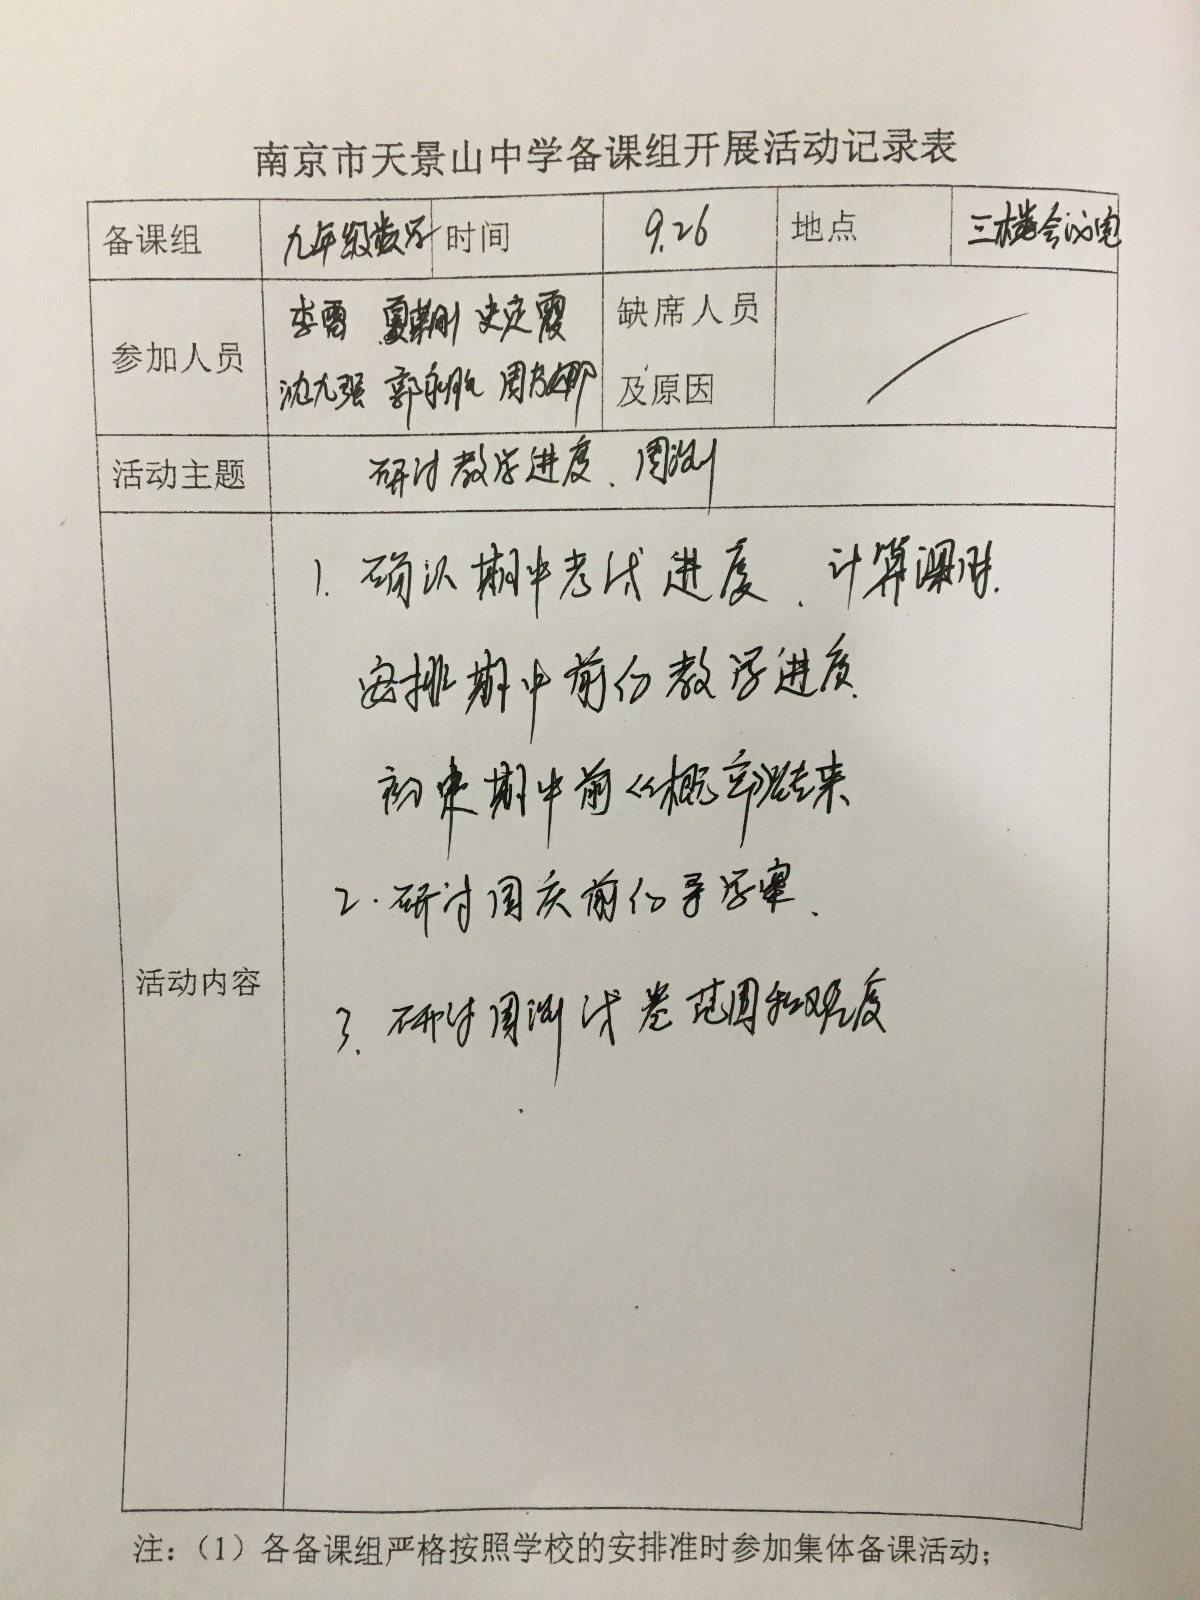 南京市天景山中学备课组开展活动记录表
备课组 九年级数学 时间 9.26 地点 三楼会议室
参加人员 李雷 夏朝刚 史定霞 缺席人员
沈九强 郭 周 娜 及原因
活动主题 研讨教学进度、周测
活动内容
1. 确认期中考试进度、计算课时.
安排期中前的教学进度.
初定期中前《概率》结束
2. 研讨国庆前的导学案、
3. 研讨周测试卷范围和难度
注：（1）各备课组严格按照学校的安排准时参加集体备课活动；